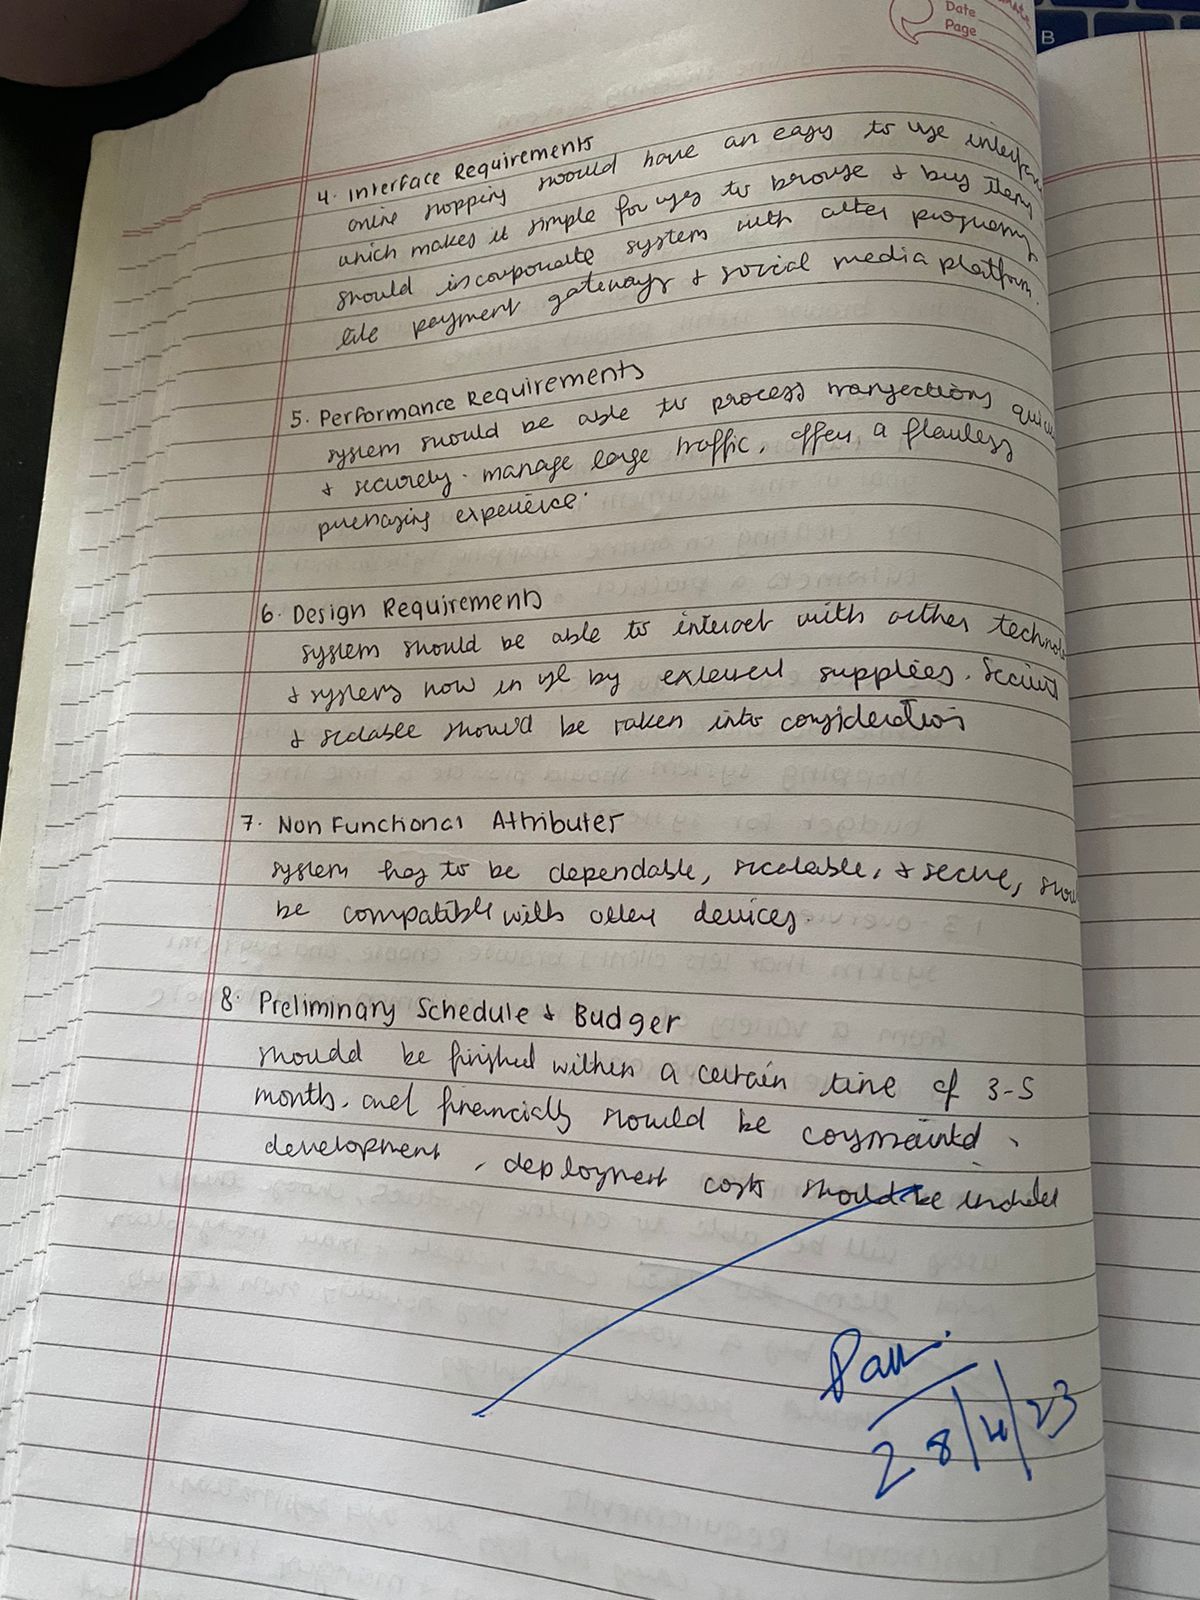 Date
Page
B
4. Interface Requirements
online shopping should have an easy to use interface
which makes it simple for users to browse & buy items
should incorporate system with other programs
like payment gateways & social media platform.
5. Performance Requirements
system should be able to process transactions quic
& securely. manage large traffic, offer a flawless
purchasing experience.
6. Design Requirements
system should be able to interact with other technol
& systems now in use by external supplies. Securit
& scalable should be taken into consideration
7. Non Functional Attributes
system has to be dependable, scalable, & secure, shou
be compatible with other devices.
8. Preliminary Schedule & Budget
should be finished within a certain time of 3-5
month. and financially should be constrainted.
development, deployment costs should be included
28/4/23